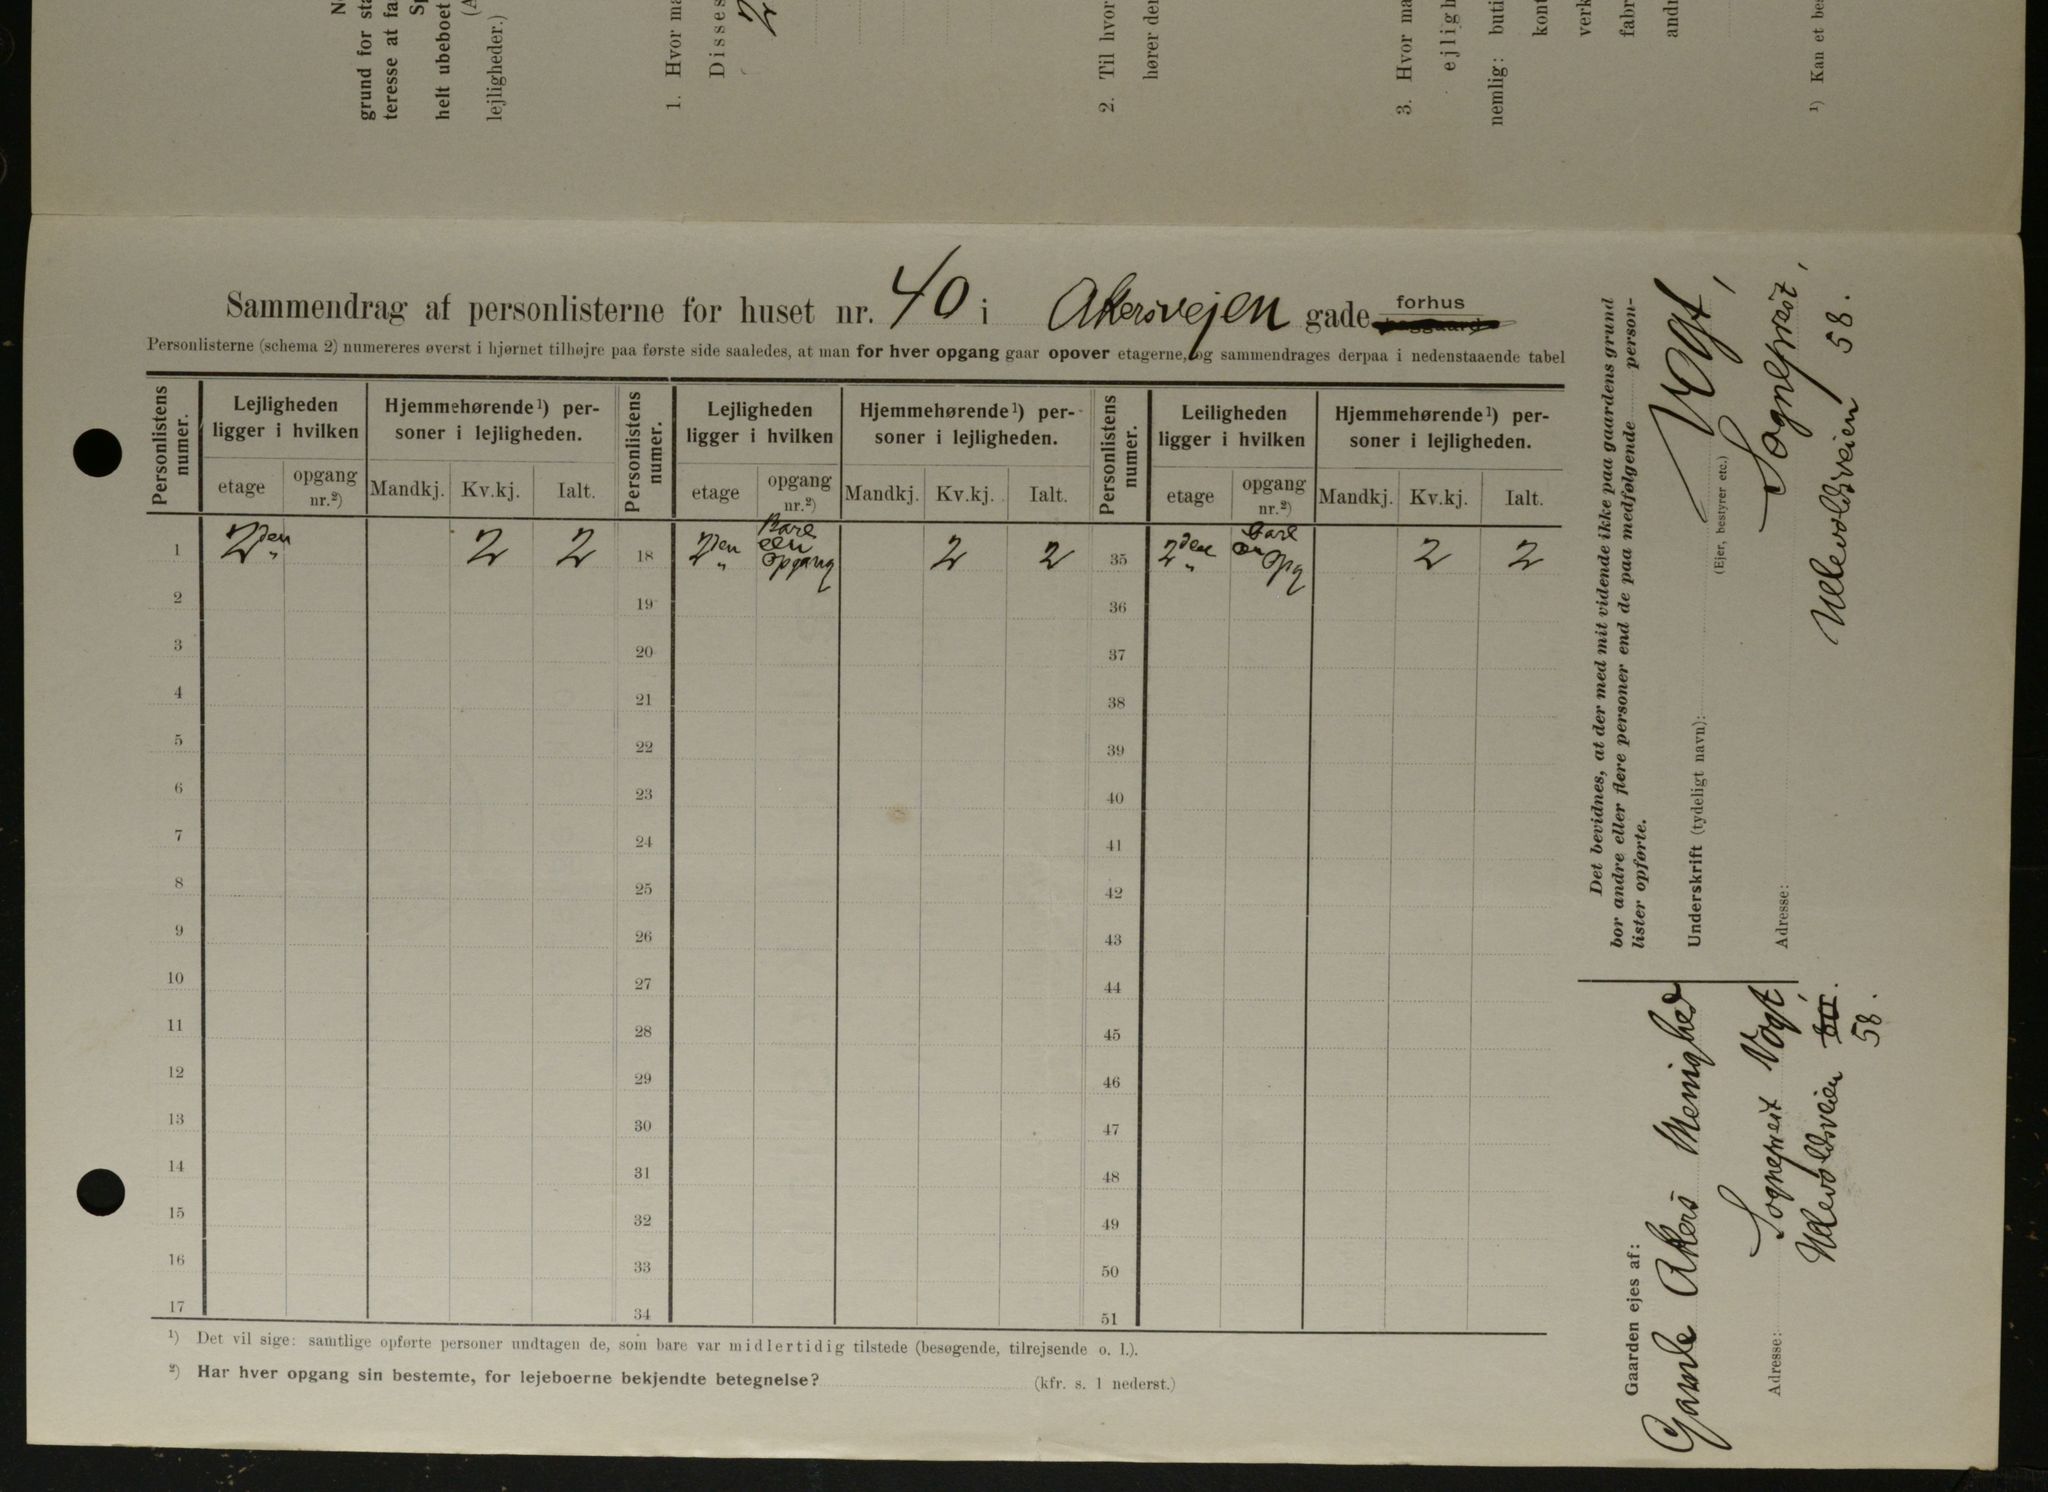 grund for sta
teresse at fa
helt ubeboet
lejligheder.)
1. Hvor ma
Disses
2
2. Til hvor
hører der
3. Hvor ma
ejligh
nemlig: buti
kont
verk
fabr
andr
¹) Kan et be
Sammendrag af personlisterne for huset nr. 40 i Akersvejen gade forhus
Personlisterne (schema 2) numereres øverst i hjørnet tilhøjre paa første side saaledes, at man for hver opgang gaar opover etagerne, og sammendrages derpaa i nedenstaaende tabel
Personlistens numer. Lejligheden ligger i hvilken Hjemmehørende¹) personer i lejligheden. Personlistens numer. Lejligheden ligger i hvilken Hjemmehørende¹) personer i lejligheden. Personlistens numer. Leiligheden ligger i hvilken Hjemmehørende¹) personer i lejligheden.
etage opgang nr.²) Mandkj. Kv.kj. Ialt. etage opgang nr.²) Mandkj. Kv.kj. Ialt. etage opgang nr.²) Mandkj. Kv.kj. Ialt.
1 2den 2 2 18 2den Bare een Opgang 2 2 35 2den bare en Opg 2 2
2 19 36
3 20 37
4 21 38
5 22 39
6 23 40
7 24 41
8 25 42
9 26 43
10 27 44
11 28 45
12 29 46
13 30 47
14 31 48
15 32 49
16 33 50
17 34 51
¹) Det vil sige: samtlige opførte personer undtagen de, som bare var midlertidig tilstede (besøgende, tilrejsende o. l.).
²) Har hver opgang sin bestemte, for lejeboerne bekjendte betegnelse? (kfr. s. 1 nederst.)
Det bevidnes, at der med mit vidende ikke paa gaardens grund
bor andre eller flere personer end de paa medfølgende person-
lister opførte.
Underskrift (tydeligt navn): Vogt,
(Ejer, bestyrer etc.)
Sogneprest,
Adresse: Ullevoldsveien 58.
Gaarden ejes af:
Gamle Akers Menighed
Sogneprest Vogt
Adresse: Ullevoldsveien
58.